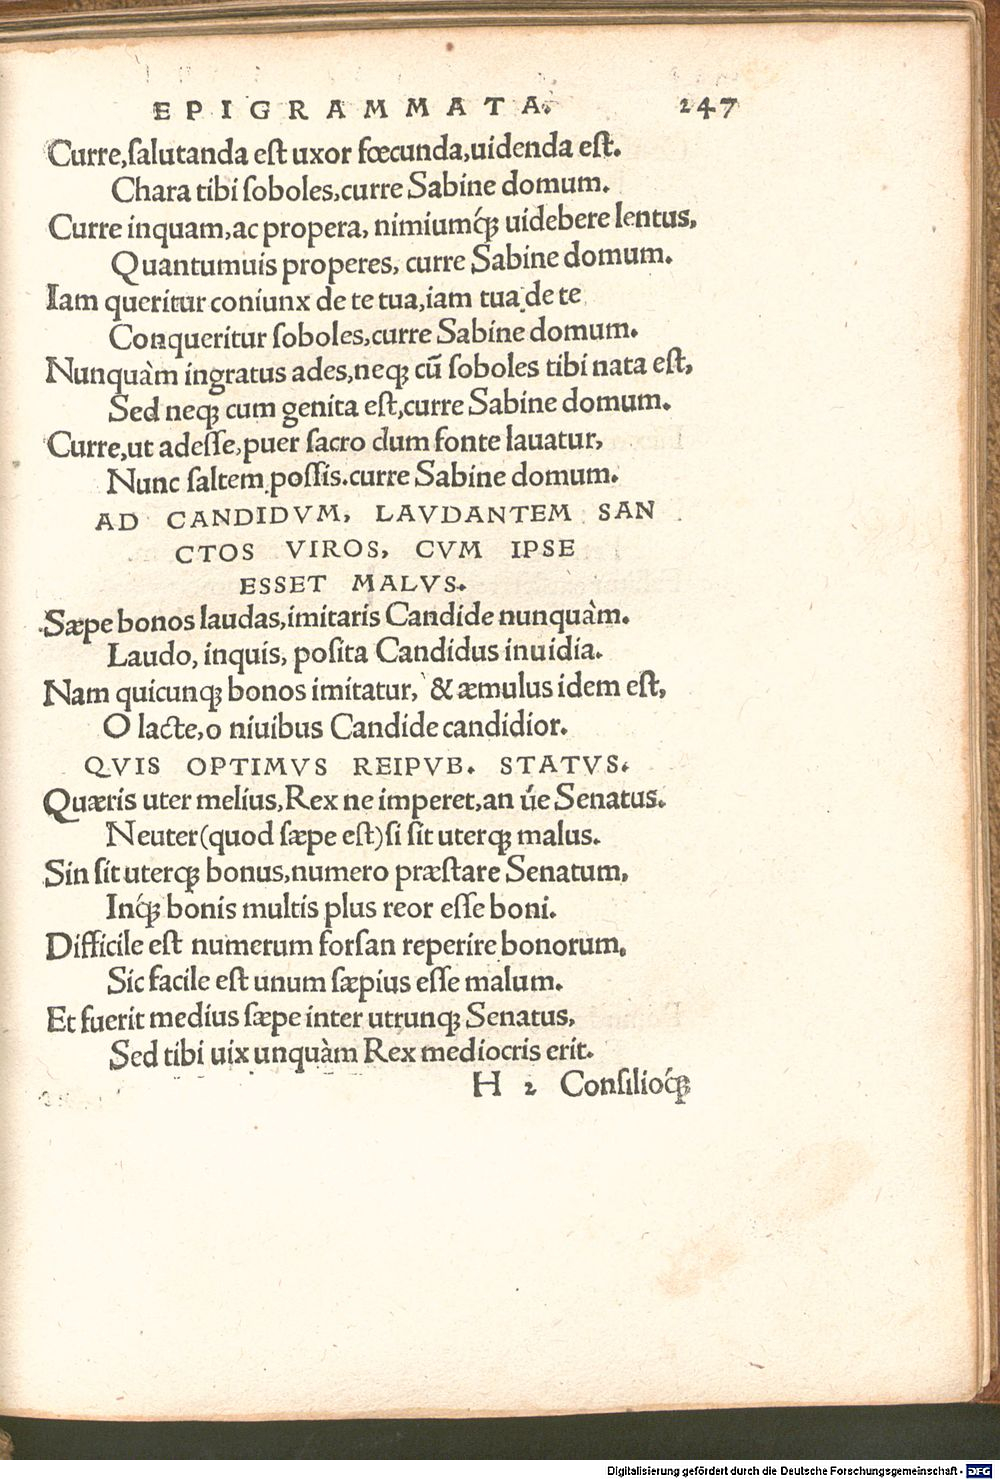 EPIGRAMMATA. 247
Curre,ſalutanda eſt uxor fœcunda,uidenda eſt.
Chara tibi ſoboles,curre Sabine domum.
Curre inquam,ac propera, nimiumq́ꝫ uidebere lentus,
Quantumuis properes, curre Sabine domum.
Iam queritur coniunx de te tua,iam tua de te
Conqueritur ſoboles,curre Sabine domum.
Nunquàm ingratus ades,neqꝫ cū ſoboles tibi nata eſt,
Sed neqꝫ cum genita eſt,curre Sabine domum.
Curre,ut adeſſe,puer ſacro dum fonte lauatur,
Nunc ſaltem poſſis.curre Sabine domum.
AD CANDIDVM, LAVDANTEM SAN
CTOS VIROS, CVM IPSE
ESSET MALVS.
Sæpe bonos laudas,imitaris Candide nunquàm.
Laudo, inquis, poſita Candidus inuidia.
Nam quicunqꝫ bonos imitatur, & æmulus idem eſt,
O lacte,o niuibus Candide candidior.
QVIS OPTIMVS REIPVB. STATVS.
Quæris uter melius,Rex ne imperet,an úe Senatus.
Neuter(quod ſæpe eſt)ſi ſit uterqꝫ malus.
Sin ſit uterqꝫ bonus,numero præſtare Senatum,
Inq́ꝫ bonis multis plus reor eſſe boni.
Difficile eſt numerum forſan reperire bonorum,
Sic facile eſt unum ſæpius eſſe malum.
Et fuerit medius ſæpe inter utrunqꝫ Senatus,
Sed tibi uix unquàm Rex mediocris erit.
H 2 Conſilioq́ꝫ
Digitalisierung gefördert durch die Deutsche Forschungsgemeinschaft - DFG